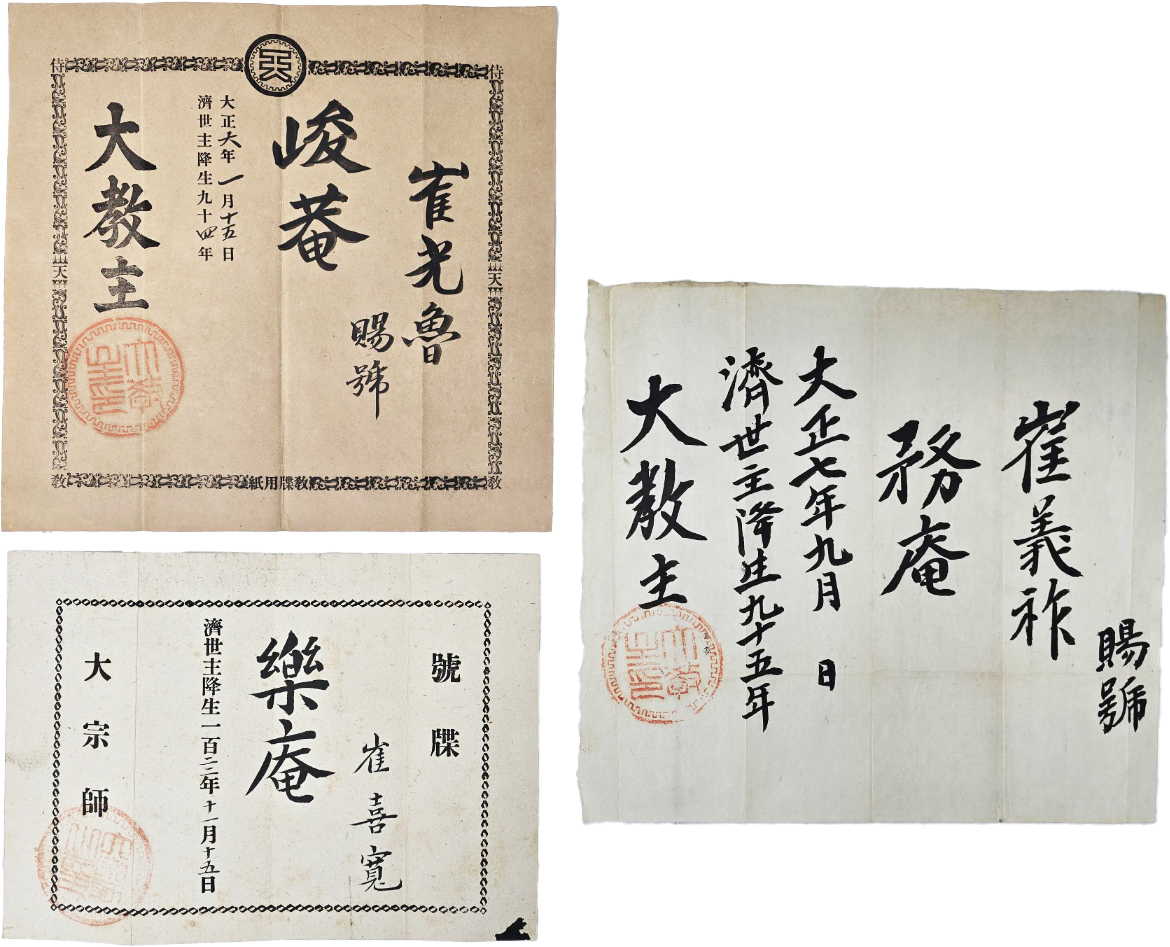 崔光魯
賜號
峻菴
大正六年一月十五日
濟世主降生九十四年
大教主
侍
天
教
侍
天
教
教牒用紙
號牒
崔喜寬
樂庵
濟世主降生一百二二年十一月十五日
大宗師
賜號
崔義祚
務庵
大正七年九月 日
濟世主降生九十五年
大教主